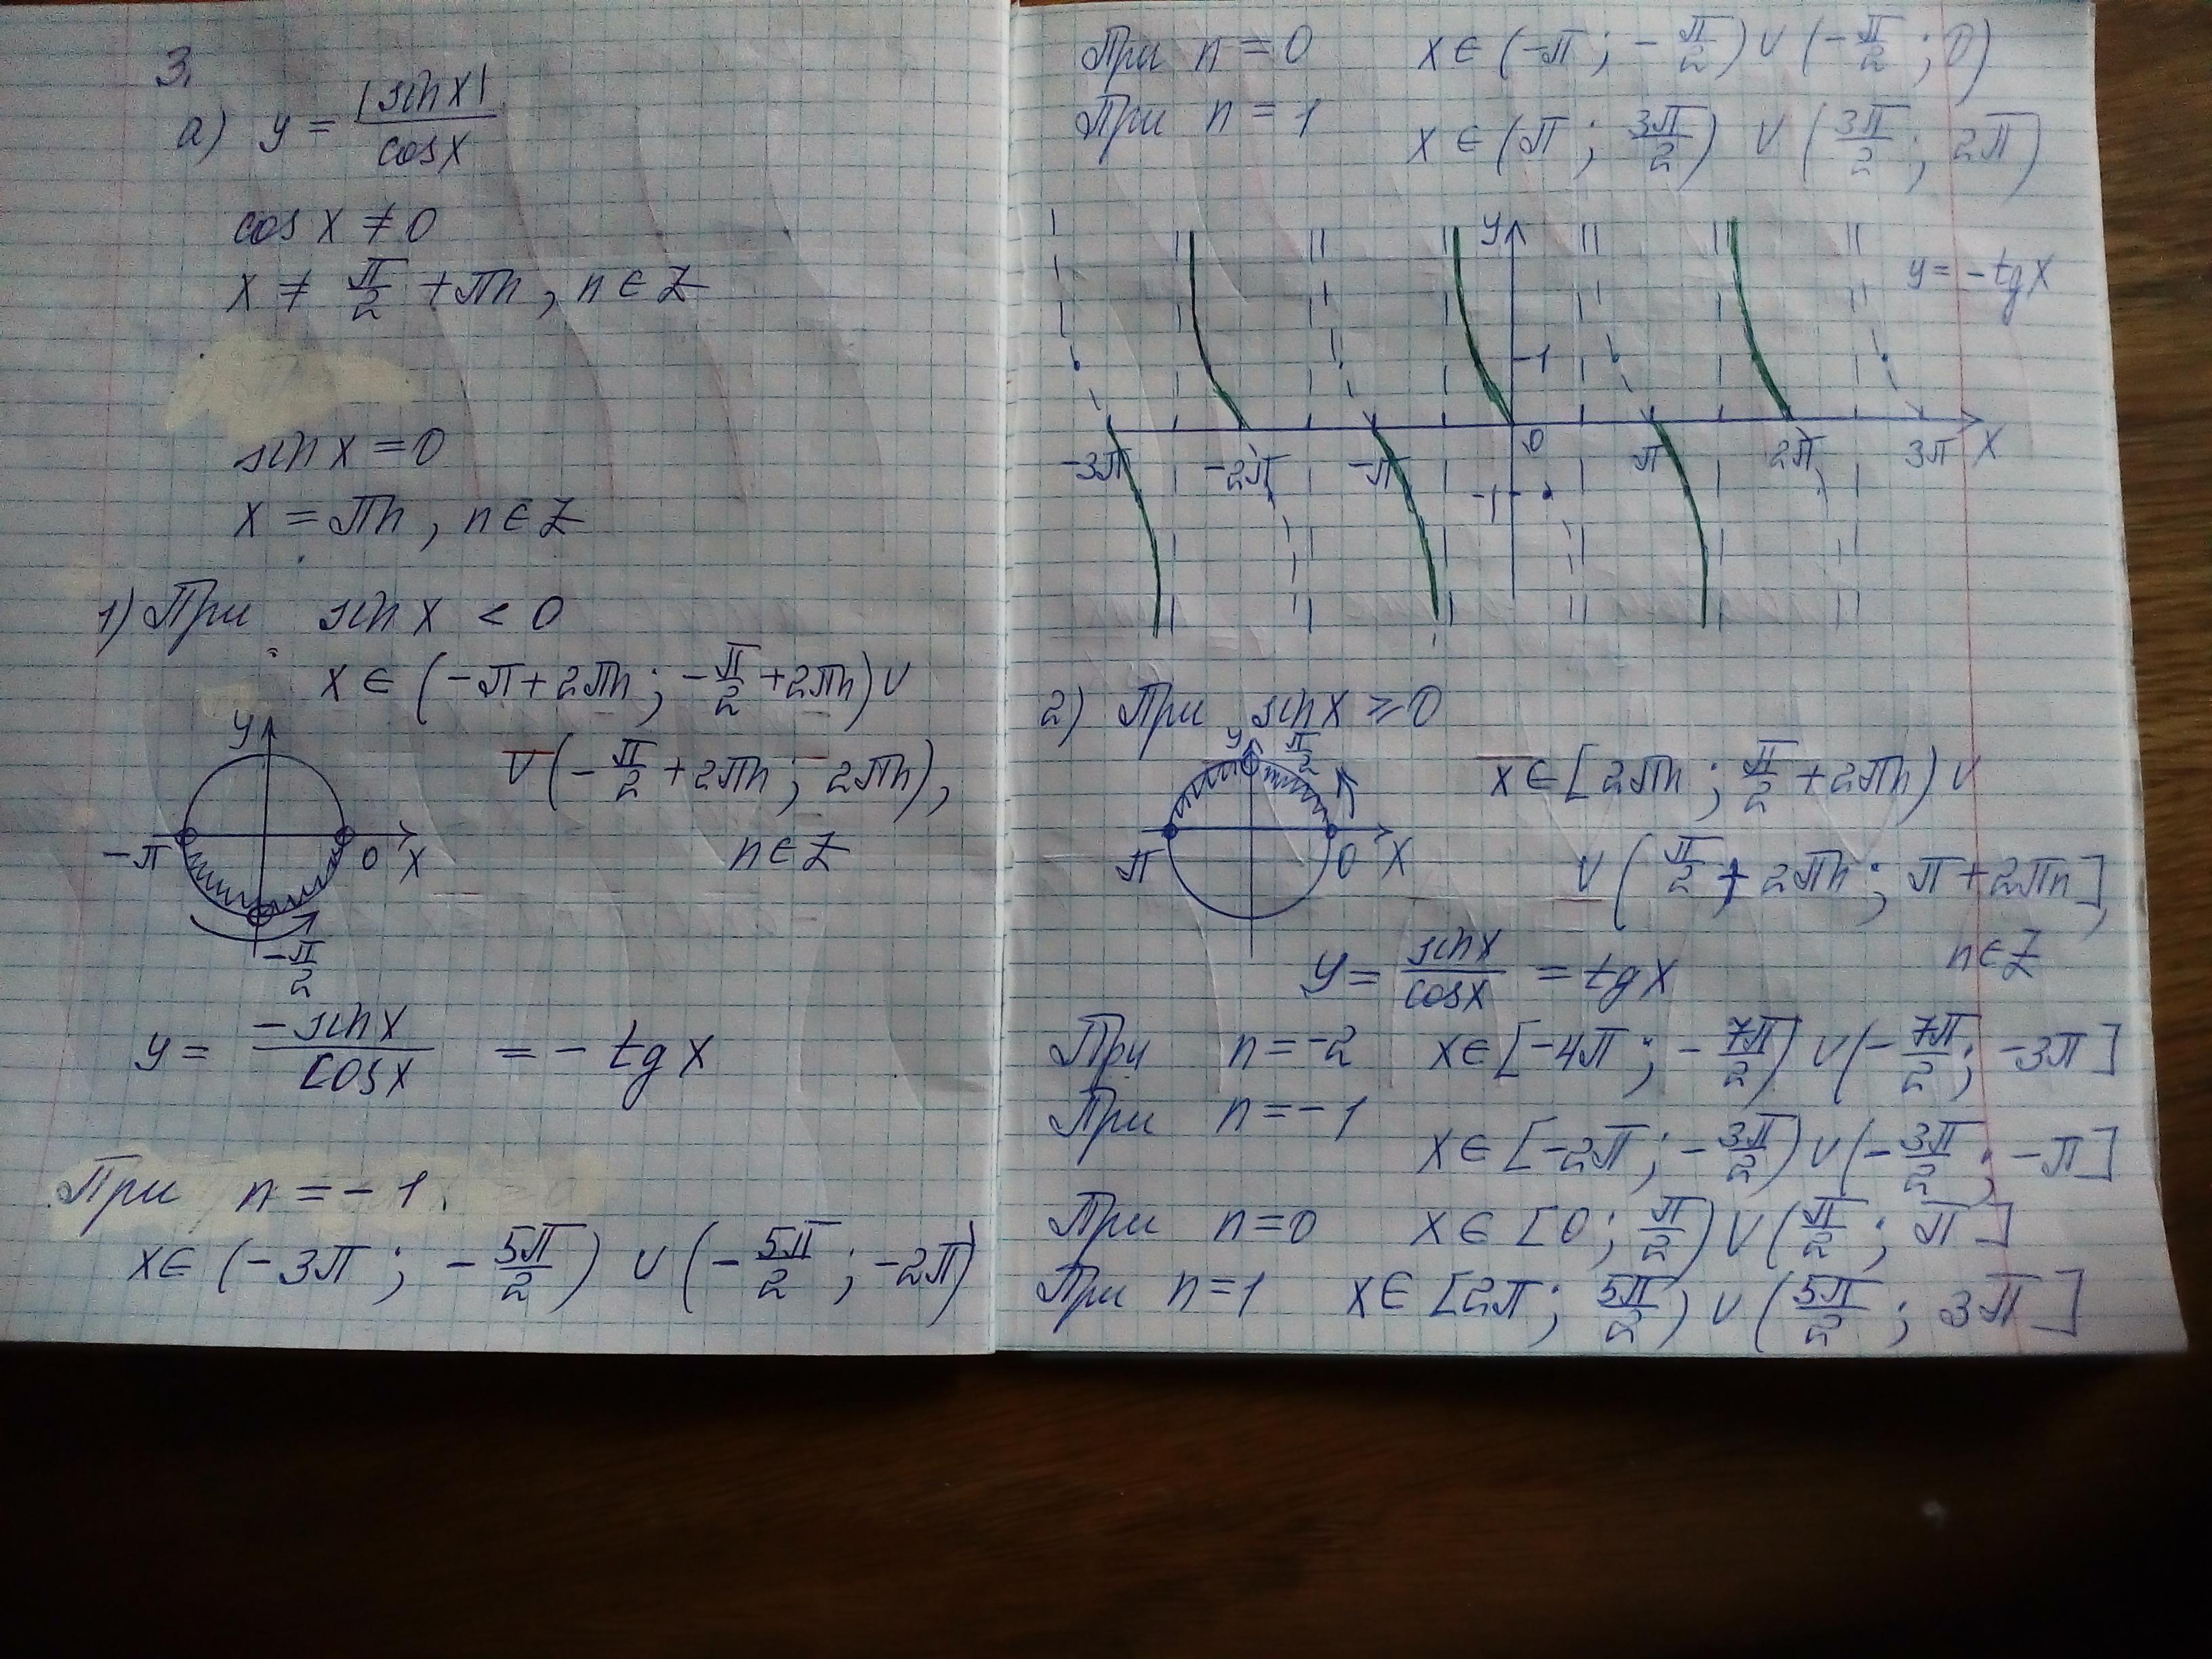 3.
а) y = |sin x| / cos x
cos x ≠ 0
x ≠ π/2 + πn, n ∈ Z
sin x = 0
x = πn, n ∈ Z
1) При sin x < 0
x ∈ (-π + 2πn; -π/2 + 2πn) ∪
∪ (-π/2 + 2πn; 2πn),
n ∈ Z
y
-π 0 x
-π/2
y = -sin x / cos x = -tg x
При n = -1
x ∈ (-3π; -5π/2) ∪ (-5π/2; -2π)
При n = 0 x ∈ (-π; -π/2) ∪ (-π/2; 0)
При n = 1 x ∈ (π; 3π/2) ∪ (3π/2; 2π)
y
y = -tg x
1
0
-3π -2π -π π 2π 3π x
-1
2) При sin x ⩾ 0
y π/2
π 0 x
x ∈ [2πn; π/2 + 2πn) ∪
∪ (π/2 + 2πn; π + 2πn],
n ∈ Z
y = sin x / cos x = tg x
При n = -2 x ∈ [-4π; -7π/2) ∪ (-7π/2; -3π]
При n = -1 x ∈ [-2π; -3π/2) ∪ (-3π/2; -π]
При n = 0 x ∈ [0; π/2) ∪ (π/2; π]
При n = 1 x ∈ [2π; 5π/2) ∪ (5π/2; 3π]